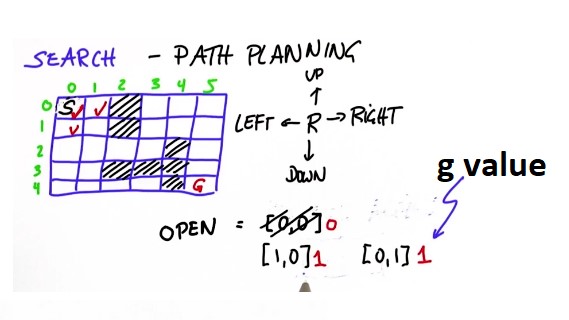 SEARCH - PATH PLANNING
0 1 2 3 4 5
0 S
1
2
3
4 G
UP
LEFT ← R → RIGHT
DOWN
g value
OPEN = [0,0] 0
[1,0] 1 [0,1] 1